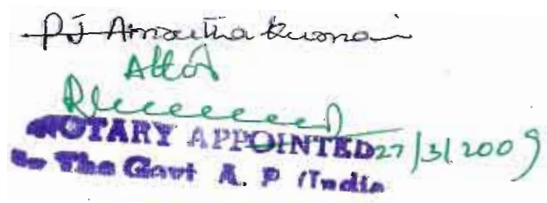 PJ Amrutha Kumari
Attd
NOTARY APPOINTED 27/3/2009
by The Govt A. P (India